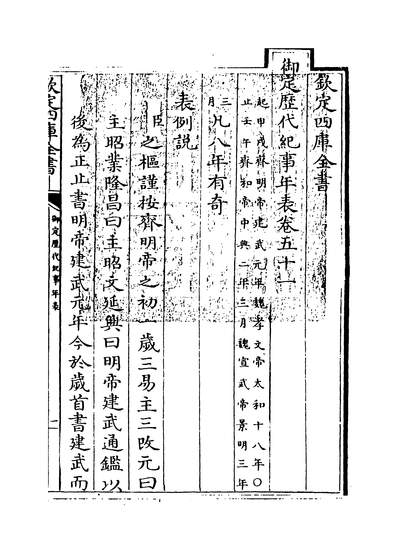 欽定四庫全書
御定歷代紀事年表卷五十一
起甲戌齊明帝建武元年魏孝文帝太和十八年○
止壬午齊和帝中興二年三月魏宣武帝景明三年
三月凡八年有奇
表例說
臣之樞謹按齊明帝之初一歲三易主三改元曰
主昭業隆昌曰主昭文延興曰明帝建武通鑑以
後為正止書明帝建武元年今於歲首書建武而
欽定四庫全書
御定歷代紀事年表
一